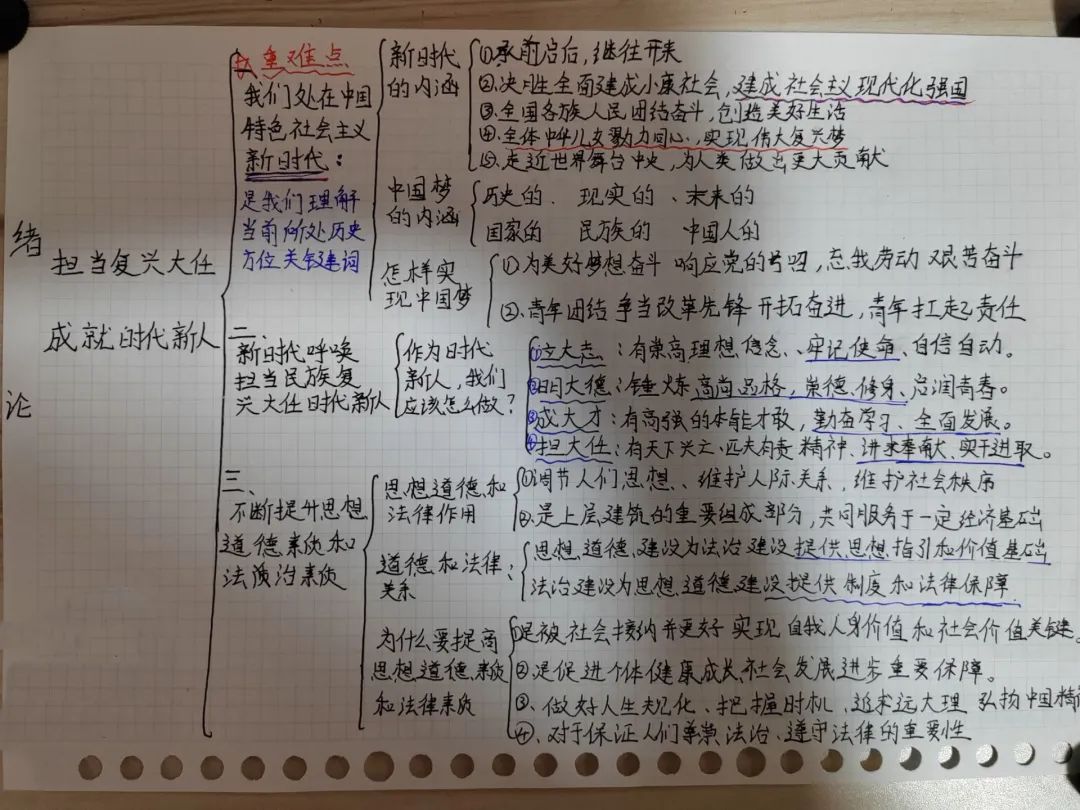 绪论
担当复兴大任
成就时代新人
一、重难点
我们处在中国
特色社会主义
新时代:
是我们理解
当前所处历史
方位关键词
新时代
的内涵
①承前启后，继往开来
②决胜全面建成小康社会，建成社会主义现代化强国
③全国各族人民团结奋斗，创造美好生活
④全体中华儿女勠力同心，实现伟大复兴梦
⑤走近世界舞台中央，为人类做出更大贡献
中国梦
的内涵
历史的、现实的、未来的
国家的 民族的 中国人的
怎样实
现中国梦
①为美好梦想奋斗 响应党的号召，忘我劳动 艰苦奋斗
②青年团结争当改革先锋 开拓奋进，青年扛起责任
二、
新时代呼唤
担当民族复
兴大任时代新人
作为时代
新人，我们
应该怎么做?
①立大志：有崇高理想信念、牢记使命、自信自动。
②明大德：锤炼高尚品格，崇德、修身、启润青春。
③成大才：有高强的本能才敢，勤奋学习、全面发展。
④担大任：有天下兴亡、匹夫有责精神、讲求奉献、实干进取。
三、
不断提升思想
道德素质和
法质治素质
思想道德和
法律作用
①调节人们思想、维护人际关系，维护社会秩序
②是上层建筑的重要组成部分，共同服务于一定经济基础
道德和法律
关系：
思想道德建设为法治建设提供思想指引和价值基础
法治建设为思想道德建设提供制度和法律保障
为什么要提高
思想道德素质
和法律素质
①是被社会接纳并更好实现自我人身价值和社会价值关键。
②是促进个体健康成长社会发展进步重要保障。
③、做好人生规化、把握时机、追求远大理 弘扬中国精
④、对于保证人们尊崇法治、遵守法律的重要性